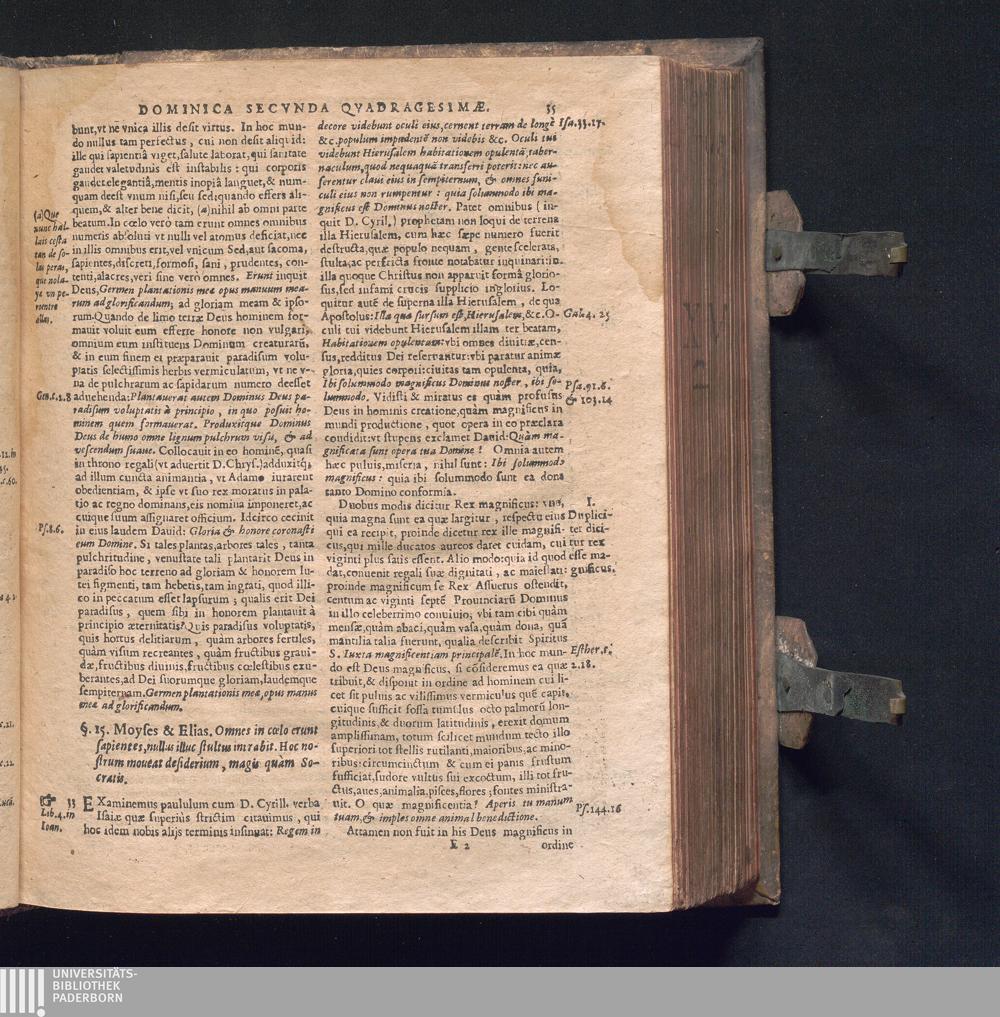 DOMINICA SECVNDA QVADRAGESIMÆ. 35
bunt,vt nē vnica illis desit virtus. In hoc mun-
do nullus tam perfectus, cui non desit aliquid:
ille qui sapientiâ viget,salute laborat,qui sanitate
gaudet valetudinis est instabilis: qui corporis
gaudet elegantiâ,mentis inopiâ languet,& num-
quam deest vnum nisi,seu sed;quando effers ali-
quem,& alter bene dicit, (a)nihil ab omni parte
beatum.In cœlo verò tam erunt omnes omnibus
numeris absoluti vt nulli vel atomus deficiat,nec
in illis omnibus erit,vel vnicum Sed,aut sacoma,
sapientes,discreti,formosi, sani, prudentes, con-
tenti,alacres,veri sine verò omnes. Erunt inquit
Deus,Germen plantationis meæ opus manuum mea-
rum ad glorificandum; ad gloriam meam & ipso-
rum.Quando de limo terræ Deus hominem for-
mauit voluit eum efferre honore non vulgari,
omnium eum instituens Dominum creaturarũ,
& in eum finem ei præparauit paradisum volu-
ptatis selectissimis herbis vermiculatum, vt ne v-
na de pulchrarum ac sapidarum numero deesset
aduehenda:Plantauerat autem Dominus Deus pa-
radisum voluptatis à principio, in quo posuit ho-
minem quem formauerat. Produxitque Dominus
Deus de humo omne lignum pulchrum visu, & ad
vescendum suaue. Collocauit in eo hominē, quasi
in throno regali(vt aduertit D.Chrys.)adduxitq;,
ad illum cuncta animantia, vt Adamo iurarent
obedientiam, & ipse vt suo rex moratus in pala-
tio ac regno dominans,eis nomina imponeret,ac
cuique suum assignaret officium. Idcirco cecinit
in eius laudem Dauid: Gloria & honore coronasti
eum Domine. Si tales plantas,arbores tales, tanta
pulchritudine, venustate tali plantarit Deus in
paradiso hoc terreno ad gloriam & honorem lu-
tei figmenti, tam hebetis,tam ingrati, quod illi-
co in peccatum esset lapsurum; qualis erit Dei
paradisus, quem sibi in honorem plantauit à
principio æternitatis?Quis paradisus voluptatis,
quis hortus delitiarum, quàm arbores fertiles,
quàm visum recreantes, quàm fructibus graui-
dæ,fructibus diuinis,fructibus cœlestibus exu-
berantes,ad Dei suorumque gloriam,laudemque
sempiternam.Germen plantationis meæ,opus manus
meæ ad glorificandum.
§. 15. Moyses & Elias. Omnes in cœlo erunt
sapientes,nullus illuc stultus intrabit. Hoc no-
strum moueat desiderium, magis quam So-
cratis.
EXaminemus paululum cum D. Cyrill. verba
Isaiæ quæ superiùs strictim citauimus, qui
hoc idem nobis alijs terminis insinuat: Regem in
(a)Que
Gen.c.2.8
Ps.8.6.
☞ 33
Lib.4.in
Ioan.
decore videbunt oculi eius,cernent terram de longè
&c.populum impudentē non videbis &c. Oculi tui
videbunt Hierusalem habitationem opulentã,taber-
naculum,quod nequaquã transferri poterit:nec au-
ferentur claui eius in sempiternum, & omnes funi-
culi eius non rumpentur: quia solummodo ibi ma-
gnificus est Dominus noster. Patet omnibus (in-
quit D. Cyril.) prophetam non loqui de terrena
illa Hierusalem, cum hæc sæpe numero fuerit
destructa,quæ populo nequam, gente scelerata,
stulta,ac perfricta fronte notabatur inquinari:in
illa quoque Christus non apparuit formâ glorio-
sus,sed infami crucis supplicio inglorius. Lo-
quitur autē de superna illa Hierusalem, de qua
Apostolus:Illa quæ sursum est,Hierusalem,&c.O-
culi tui videbunt Hierusalem illam ter beatam,
Habitationem opulentam:vbi omnes diuitiæ,cen-
sus,redditus Dei reseruantur:vbi paratur animæ
gloria,quies corpori:ciuitas tam opulenta, quia,
Ibi solummodo magnificus Dominus noster, ibi so-
lummodo. Vidisti & miratus es quàm profusus
Deus in hominis creatione,quàm magnificus in
mundi productione, quot opera in eo præclara
condidit:vt stupens exclamet Dauid:Quàm ma-
gnificata sunt opera tua Domine? Omnia autem
hæc puluis,miseria, nihil sunt: Ibi solummodo
magnificus: quia ibi solummodo sunt ea dona
tanto Domino conformia.
Duobus modis dicitur Rex magnificus: vno,
quia magna sunt ea quæ largitur, respectu eius
qui ea recipit, proinde dicetur rex ille magnifi-
cus,qui mille ducatos aureos daret cuidam, cui
viginti plus satis essent. Alio modo:quia id quod
dat,conuenit regali suæ dignitati, ac maiestati:
proinde magnificum se Rex Assuerus ostendit,
centum ac viginti septē Prouinciarũ Dominus
in illo celeberrimo conuiuio; vbi tam cibi quàm
mensæ,quàm abaci,quàm vasa,quàm dona, quã
mantilia talia fuerunt, qualia describit Spiritus
S. Iuxta magnificentiam principalē. In hoc mun-
do est Deus magnificus, si cōsideremus ea quæ
tribuit,& disponit in ordine ad hominem cui li-
cet sit puluis ac vilissimus vermiculus quē capit,
cuique sufficit fossa tumulus octo palmorũ lon-
gitudinis,& duorum latitudinis, erexit domum
amplissimam, totum scilicet mundum tecto illo
superiori tot stellis rutilanti,maioribus,ac mino-
ribus:circumcinctum & cum ei panis frustum
sufficiat,sudore vultus sui excoctum, illi tot fru-
ctus,aues,animalia,pisces,flores; fontes ministra-
uit. O quæ magnificentia! Aperis tu manum
tuam,& imples omne animal benedictione.
Attamen non fuit in his Deus magnificus in
Isa.33.17.
Gala.4. 25
Psa.91.6.
& 103.24
I.
Duplici-
ter dici-
tur rex
esse ma-
gnificus.
Esther,1.
2.18.
Ps.144.16
E 2
ordine
UNIVERSITÄTS-
BIBLIOTHEK
PADERBORN